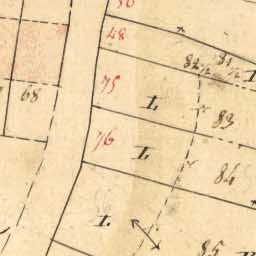 48
82½ 81½
75
L
L
68
L
83
76
L
84
L
85